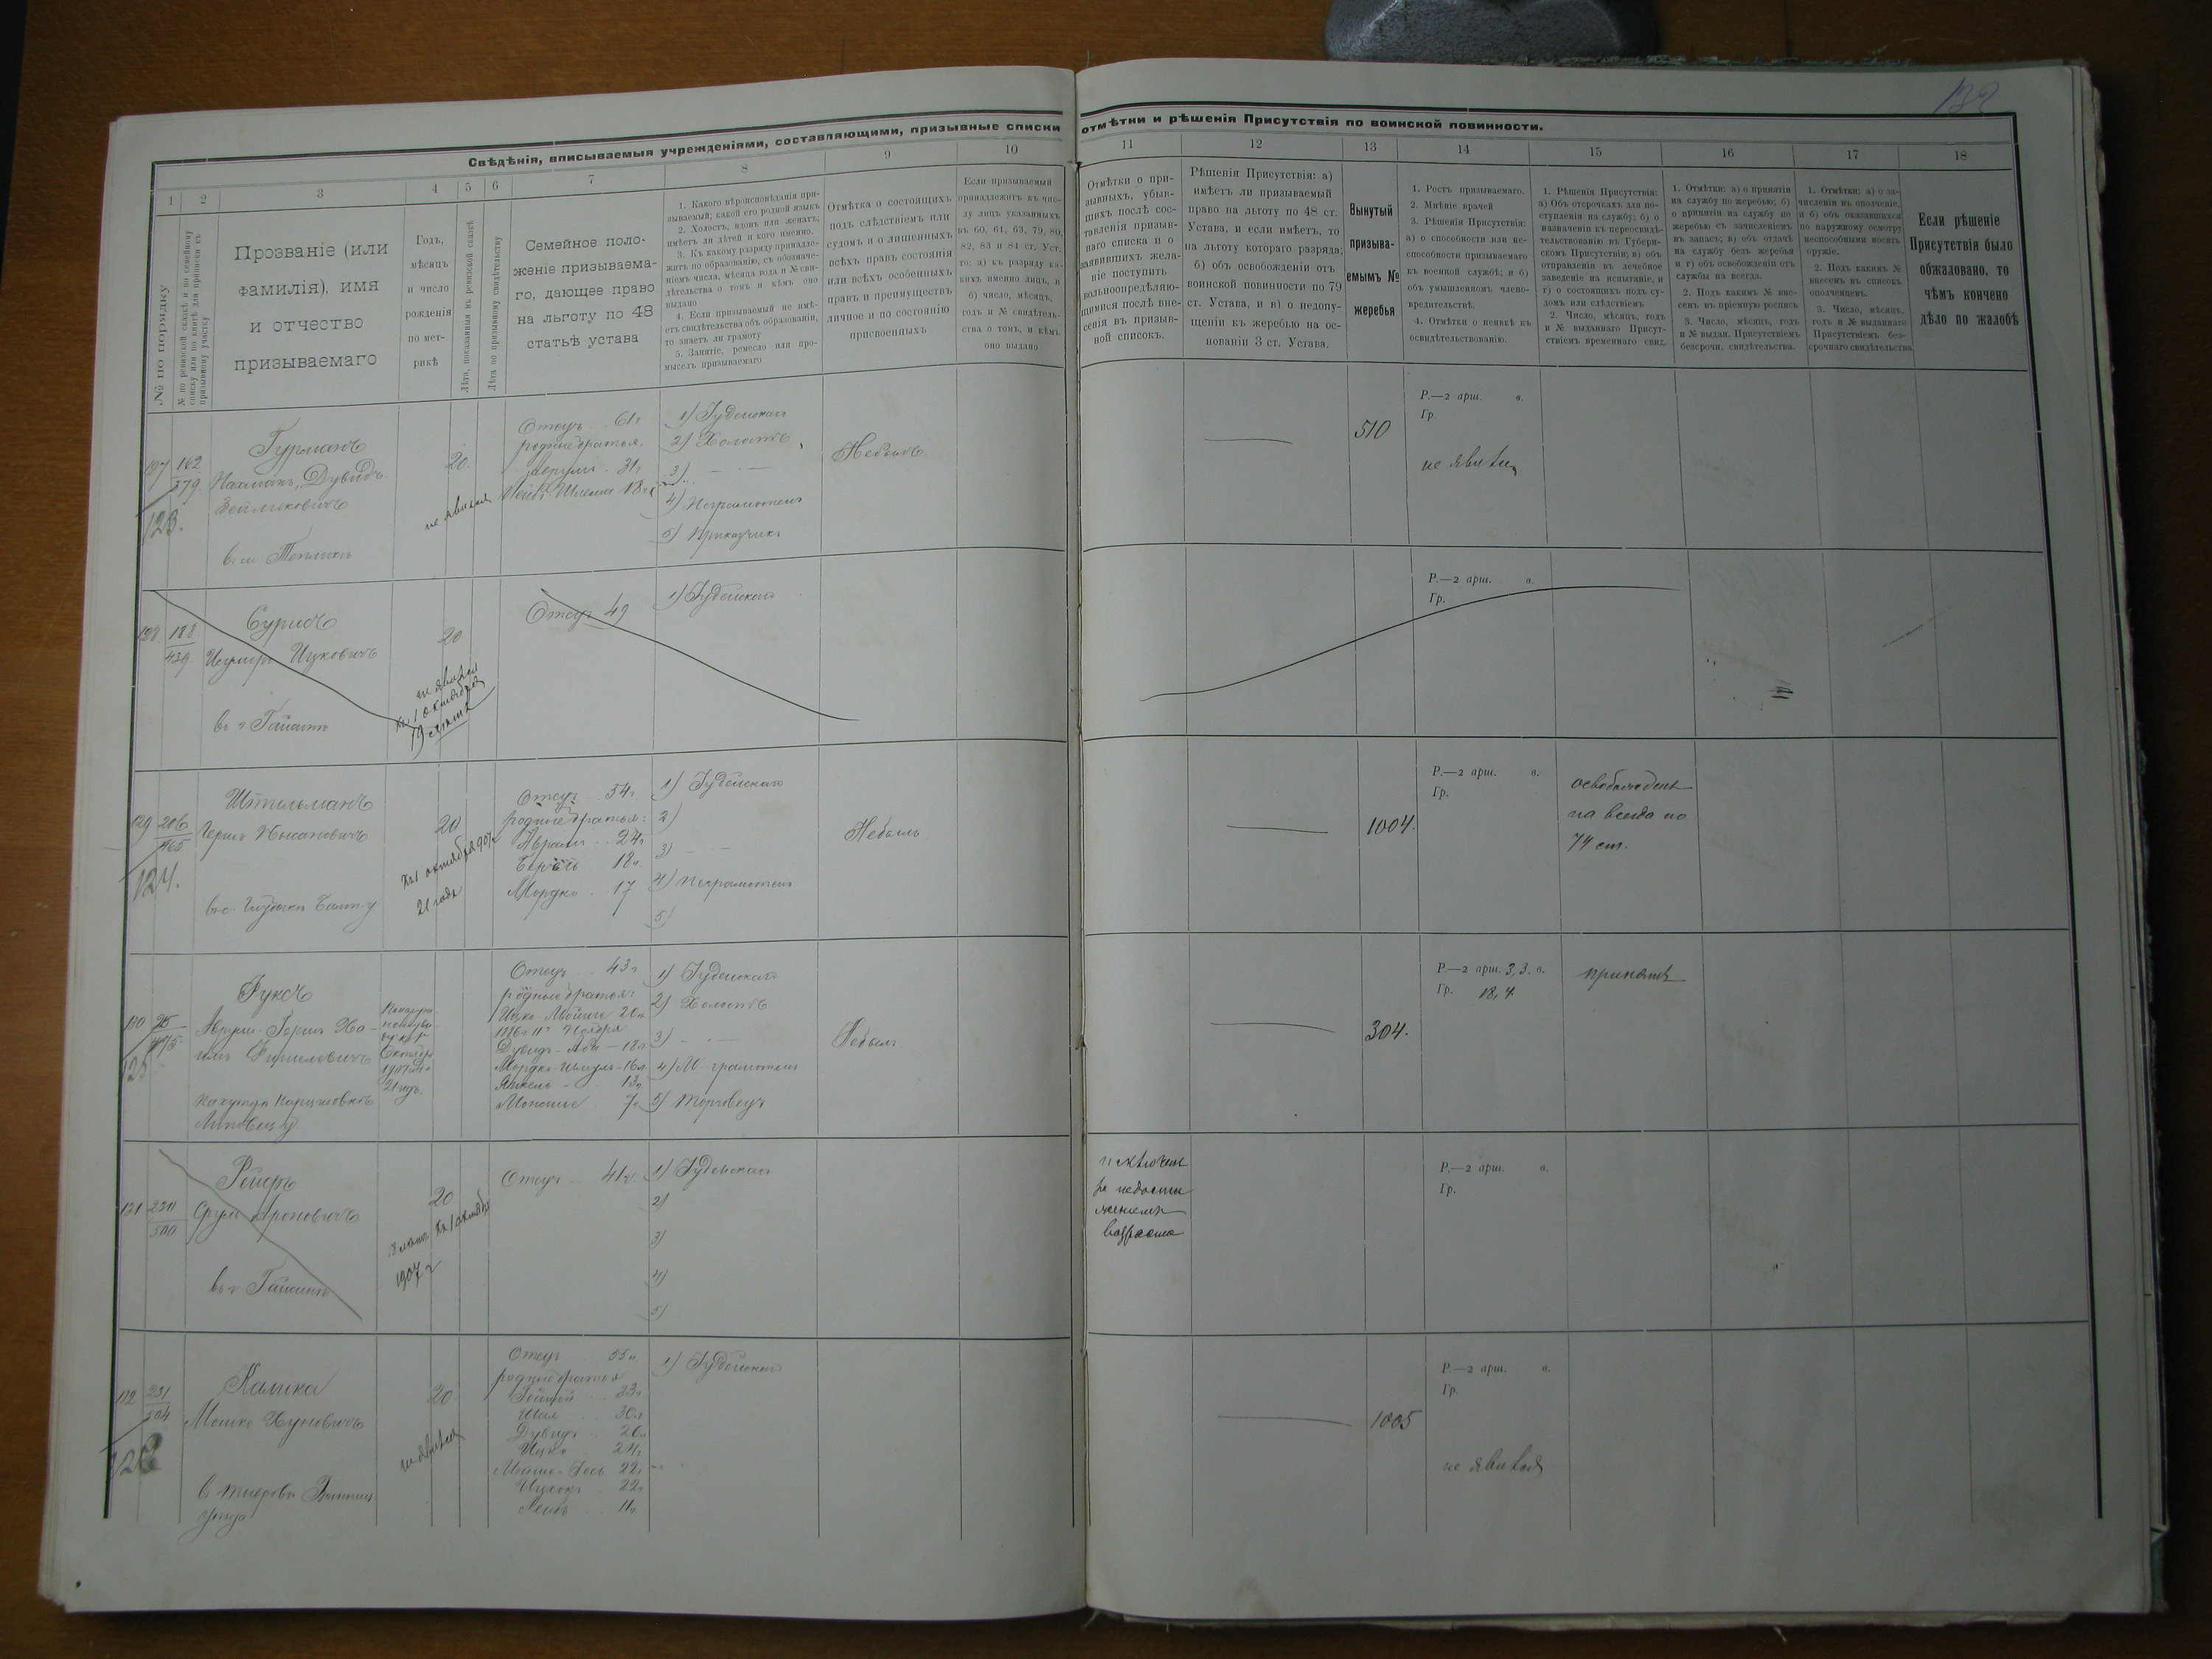 132
Свѣдѣнія, вписываемыя учрежденіями, составляющими, призывные списки
отмѣтки и рѣшенія Присутствія по воинской повинности.
1
2
3
4
5
6
7
8
9
10
11
12
13
14
15
16
17
18
№ по порядку
№ по ревизской сказкѣ и по семейному
списку или по книгѣ для приписки къ
призывному участку
Прозваніе (или
фамилія), имя
и отчество
призываемаго
Годъ,
мѣсяцъ
и число
рожденія
по мет-
рикѣ
Лѣта, показанныя въ ревизской сказкѣ
Лѣта по призывному свидѣтельству
Семейное поло-
женіе призываема-
го, дающее право
на льготу по 48
статьѣ устава
1. Какого вѣроисповѣданія при-
зываемый; какой его родной языкъ
2. Холостъ, вдовъ или женатъ;
имѣетъ ли дѣтей и кого именно.
3. Къ какому разряду принадле-
житъ по образованію, съ обозначе-
ніемъ числа, мѣсяца года и № сви-
дѣтельства о томъ и кѣмъ оно
выдано
4. Если призываемый не имѣ-
етъ свидѣтельства объ образованіи,
то знаетъ ли грамоту
5. Занятіе, ремесло или про-
мыселъ призываемаго
Отмѣтка о состоящихъ
подъ слѣдствіемъ или
судомъ и о лишенныхъ
всѣхъ правъ состоянія
или всѣхъ особенныхъ
правъ и преимуществъ
личное и по состоянію
присвоенныхъ
Если призываемый
принадлежитъ къ чис-
лу лицъ указанныхъ
въ 60, 61, 63, 79, 80,
82, 83 и 84 ст. Уст.
то: а) къ разряду ка-
кихъ именно лицъ, и
б) число, мѣсяцъ,
годъ и № свидѣтель-
ства о томъ, и кѣмъ
оно выдано
Отмѣтки о при-
зывныхъ, убыв-
шихъ послѣ сос-
тавленія призыв-
наго списка и о
заявившихъ жела-
ніе поступить
вольноопредѣляю-
щимися послѣ вне-
сенія въ призыв-
ной списокъ.
Рѣшенія Присутствія: а)
имѣетъ ли призываемый
право на льготу по 48 ст.
Устава, и если имѣетъ, то
на льготу котораго разряда;
б) объ освобожденіи отъ
воинской повинности по 79
ст. Устава, и в) о недопу-
щеніи къ жеребью на ос-
нованіи 3 ст. Устава.
Вынутый
призыва-
емымъ №
жеребья
1. Ростъ призываемаго.
2. Мнѣніе врачей
3. Рѣшенія Присутствія:
а) о способности или не-
способности призываемаго
къ военной службѣ; и б)
объ умышленномъ члено-
вредительствѣ.
4. Отмѣтки о неявкѣ къ
освидѣтельствованію.
1. Рѣшенія Присутствія:
а) Объ отсрочкахъ для по-
ступленія на службу; б) о
назначеніи къ переосвидѣ-
тельствованію въ Губерн-
скомъ Присутствіи; в) объ
отправленіи въ лечебное
заведеніе на испытаніе, и
г) о состоящихъ подъ су-
домъ или слѣдствіемъ
2. Число, мѣсяцъ, годъ
и № выданнаго Присут-
ствіемъ временнаго свид.
1. Отмѣтки: а) о принятіи
на службу по жеребью; б)
о принятіи на службу по
жеребью съ зачисленіемъ
въ запасъ; в) объ отдачѣ
на службу безъ жеребья
и г) объ освобожденіи отъ
службы на всегда.
2. Подъ какимъ № вне-
сенъ въ пріемную роспись
3. Число, мѣсяцъ, годъ
и № выдан. Присутствіемъ
безсрочн. свидѣтельства.
1. Отмѣтки; а) о за-
численіи въ ополченіе,
и б) объ оказавшихся
по наружному осмотру
неспособными носить
оружіе.
2. Подъ какимъ №
внесенъ въ списокъ
ополченцевъ.
3. Число, мѣсяцъ,
годъ и № выданнаго
Присутствіемъ без-
срочнаго свидѣтельства
Если рѣшеніе
Присутствія было
обжаловано, то
чѣмъ кончено
дѣло по жалобѣ
127
162
379.
123.
Гурманъ
Нахманъ, Дувидъ
Зейликовичъ
в. м. Тепликъ
20.
не явился
Отецъ 61 г
родные братья
Аврумъ 31 г
Лейбъ Шлема 18 л
1) Іудейскаго
2) Холостъ
3) —
4) Неграмотенъ
5) Прикащикъ
Небылъ
510
Р.—2 арш. в.
Гр.
не явился
128
188
439.
Сурисъ
Ицковичъ
въ г Гайсинъ
20
не явился
къ 1 октября
19 лѣтъ
Отецъ 49
1) Іудейскаго
Р.—2 арш. в.
Гр.
129
206
465
124.
Штильманъ
Гершъ Нысановичъ
20
къ 1 октября 907 г
21 годъ
Отецъ 54 г
родные братья:
Аврамъ 24 г
Берко 18 л.
Мордко 17
1) Іудейскаго
2)
3)
4) Неграмотенъ
5)
Небылъ
1004.
Р.—2 арш. в.
Гр.
освобожденъ
на всегда по
74 ст.
130
475
125
Фуксъ
Аврумъ-Гершъ Ха-
имъ
Липовец у
1907 г
21 годъ.
Отецъ 43 г
родные братья:
Ицко-Мойше 20 л
1886 г 11 Ноября
Дувидъ-Аба — 18 л
Мордко-Шмуль 16 л
Янкель 13 л
Моисше 7 л
1) Іудейскаго
2) Холостъ
3) —
4) М-грамотенъ
5) Торговецъ
Небылъ
304.
Р.—2 арш. 3,3. в.
Гр. 18,4
принятъ
131
230
500
Рейдеръ
Сруль Ароновичъ
въ г Гайсинъ
20
къ 1 октября
1907 г
Отецъ 41 г
1) Іудейскаго
2)
3)
4)
5)
исключенъ
за недости
женіемъ
возраста
Р.—2 арш. в.
Гр.
132
231
504
126
Калика
Мошко Хуновичъ
20
не явился
Отецъ 55 л
родные братья
33 г
30 л
Дувидъ 26 л
Ицко 24 г
22 г
22 г
Лейбъ 11 л
1) Іудейскаго
1005
Р.—2 арш. в.
Гр.
не явился